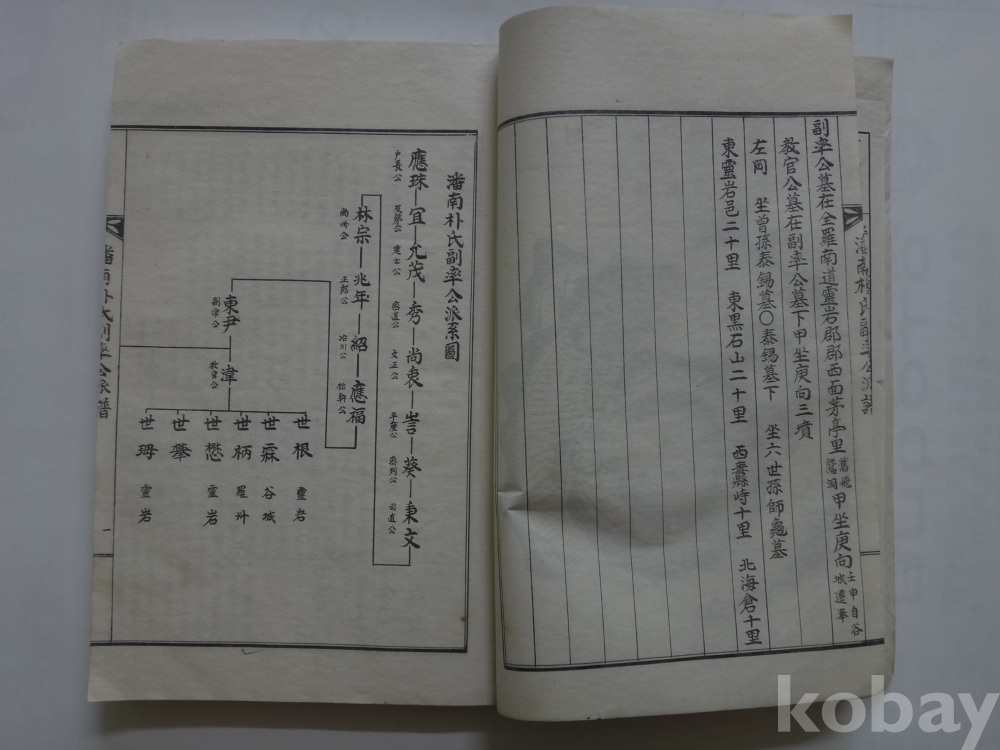 副率公墓在全羅南道靈岩郡郡西面茅亭里 甲坐庚向 壬申自谷
城遷奉
教官公墓在副率公墓下甲坐庚向三墳
左岡 坐曾孫泰錫墓〇泰錫墓下 坐六世孫師龜墓
東靈岩邑二十里 東黑石山二十里 西 峙十里 北海倉十里
潘南朴氏副率公派系圖
應珠 宜 允茂 秀 尚衷 訔 葵 秉文
戶長公 及第公 進士公 密直公 文正公 平度公 參判公 司直公
林宗 兆年 紹 應福
尚州公 正郎公 冶川公 拙軒公
東尹 湋
副率公 教官公
世根 靈岩
世霖 谷城
世柄 羅州
世懋 靈岩
世搴
世珻 靈岩
潘南朴氏副率公派譜
一
潘南朴氏副率公派譜
kobay